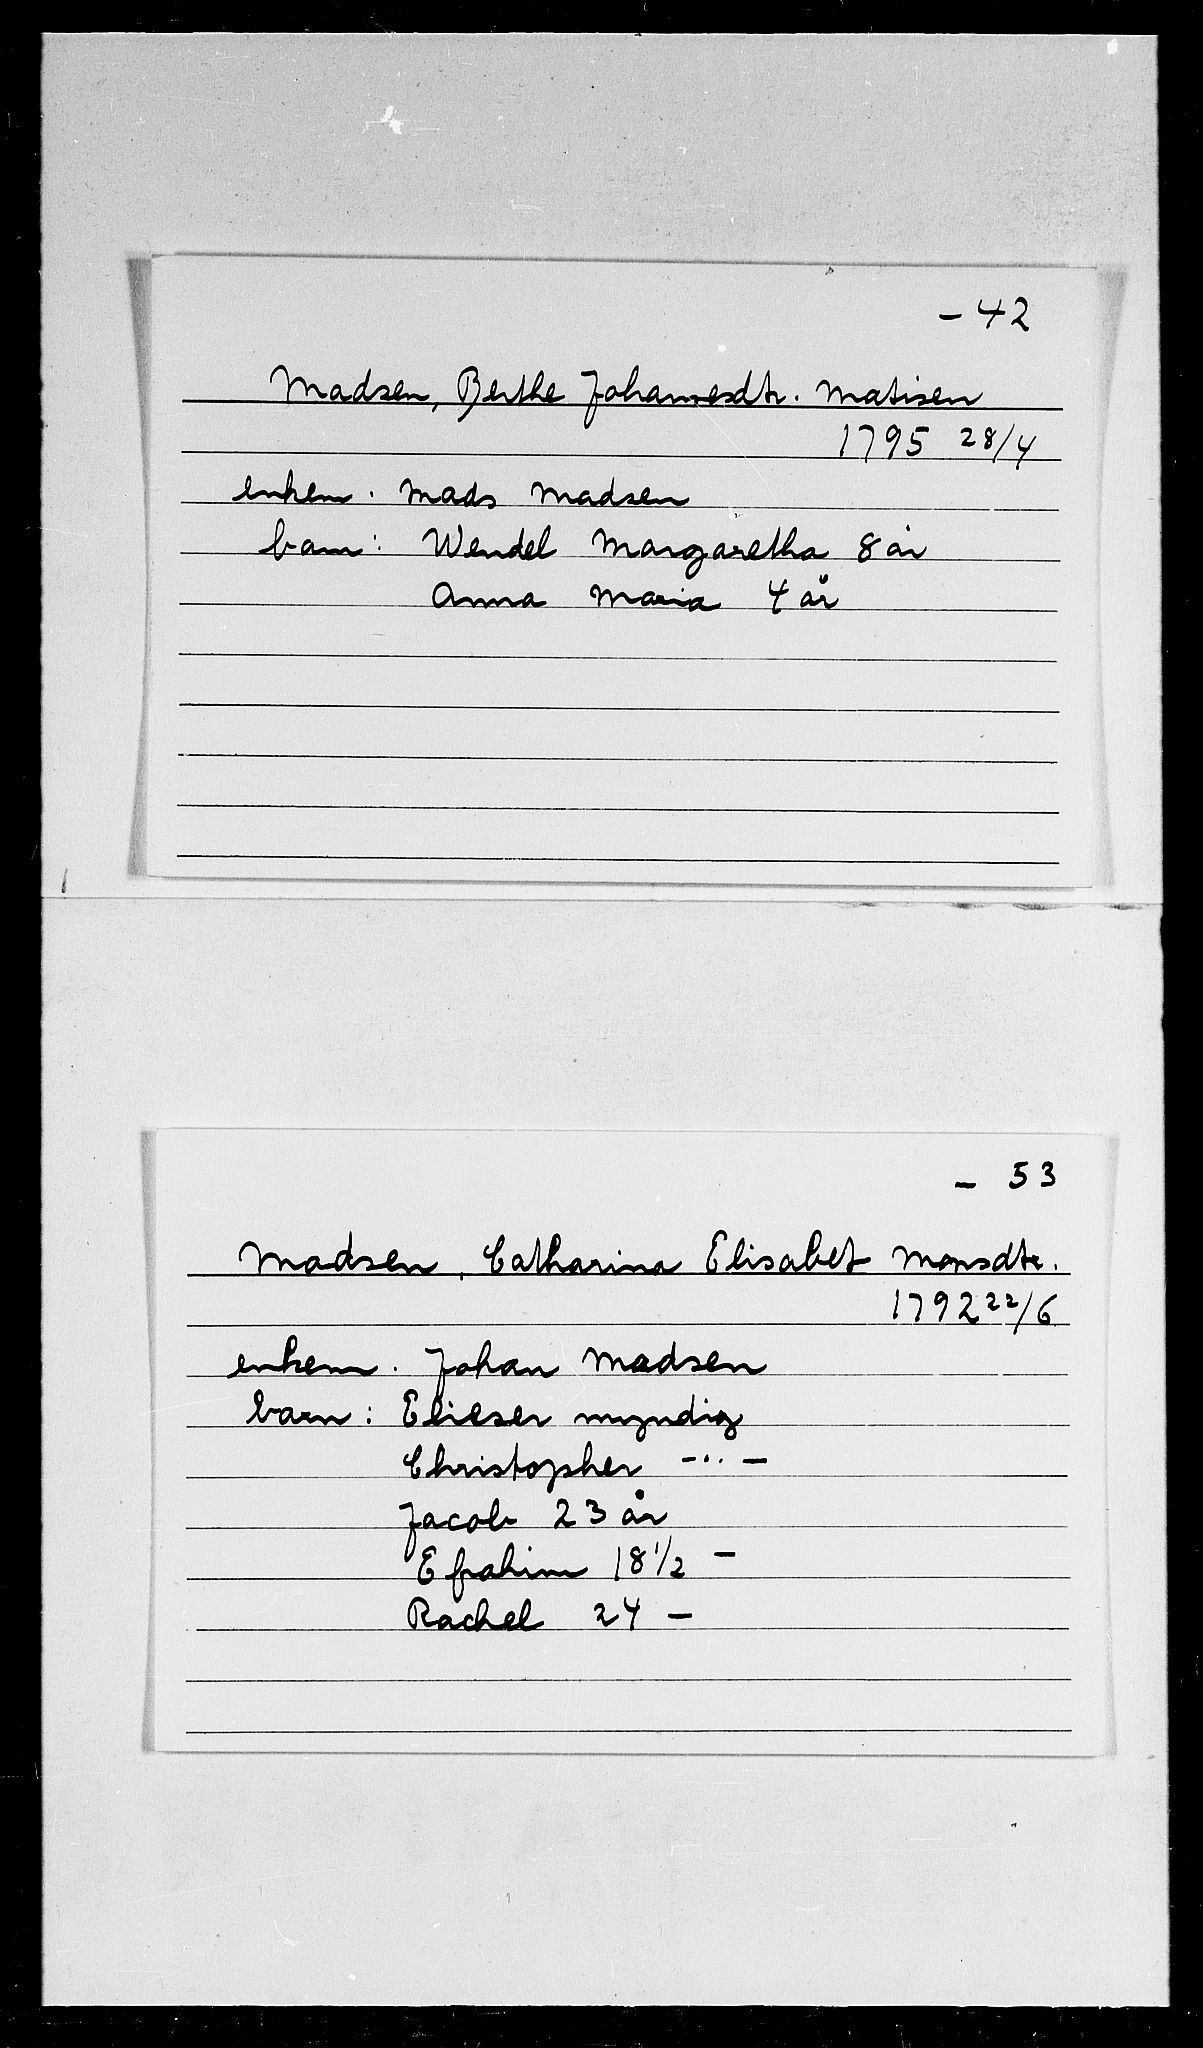 - 42
Madsen, Berthe Johannesdtr. Matisen
1795 28/4
enkem. Mads Madsen
barn: Wendel Margaretha 8 år
Anna Maria 4 år
- 53
Madsen, Catharina Elisabet Monsdtr.
1792 22/6
enkem. Johan Madsen
barn: Elieser myndig
Christopher -"-
Jacob 23 år
Efrahim 18 1/2 -
Rachel 24 -